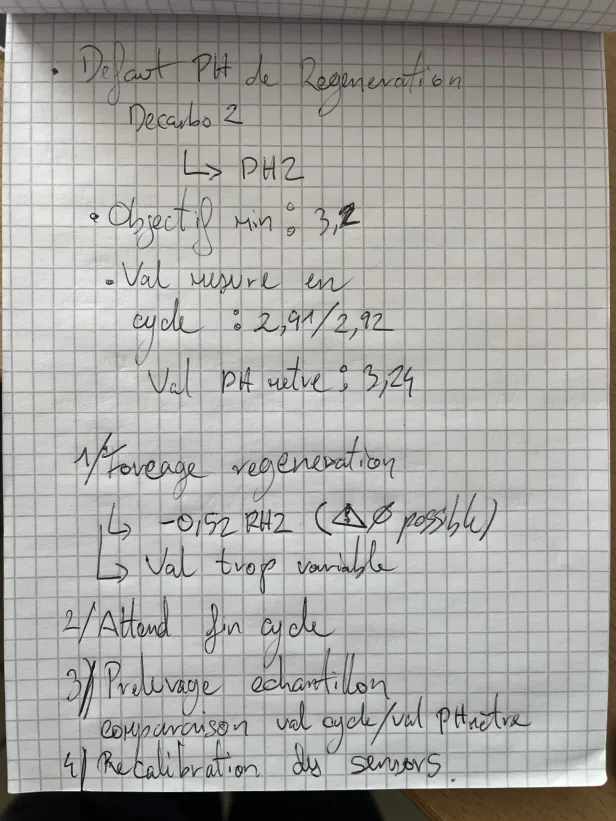 • Defaut PH de Regeneration
Decarbo 2
↳ PH2
• Objectif min : 3,2
• Val mesure en
cycle : 2,91/2,92
Val PH metre : 3,24
1/ Forcage regeneration
↳ -0,52 RH2 (⚠ ∅ possible)
↳ Val trop variable
2/ Attend fin cycle
3/ Prelevage echantillon
comparaison val cycle/val PHmetre
4/ Recalibration des sensors.